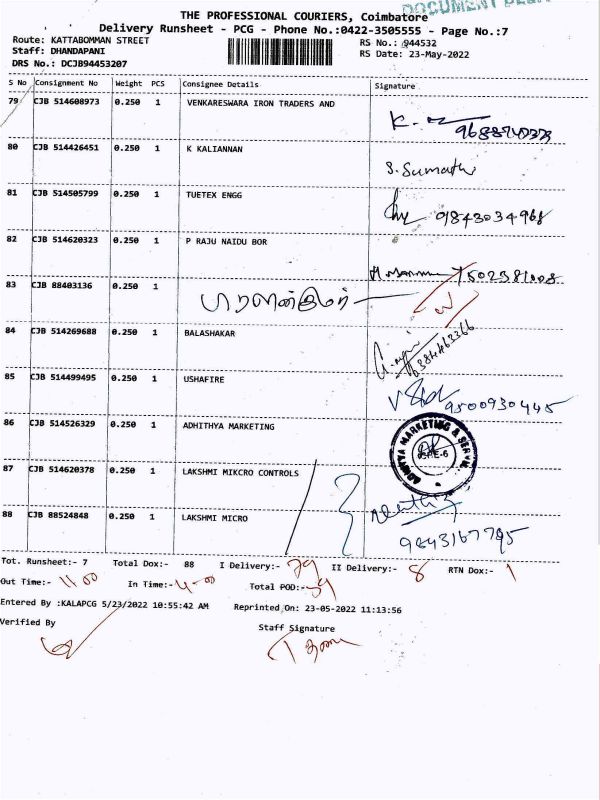 THE PROFESSIONAL COURIERS, Coimbatore
Delivery Runsheet - PCG - Phone No.:0422-3505555 - Page No.:7
Route: KATTABOMMAN STREET RS No.: 944532
Staff: DHANDAPANI RS Date: 23-May-2022
DRS No.: DCJB94453207
S No Consignment No Weight PCS Consignee Details Signature
79 CJB 514608973 0.250 1 VENKARESWARA IRON TRADERS AND
80 CJB 514426451 0.250 1 K KALIANNAN
S. Sumathi
81 CJB 514505799 0.250 1 TUETEX ENGG
9843034968
82 CJB 514620323 0.250 1 P RAJU NAIDU BOR
7502381008
83 CJB 88403136 0.250 1
84 CJB 514269688 0.250 1 BALASHAKAR
85 CJB 514499495 0.250 1 USHAFIRE
9500930445
86 CJB 514526329 0.250 1 ADHITHYA MARKETING
87 CJB 514620378 0.250 1 LAKSHMI MIKCRO CONTROLS
88 CJB 88524848 0.250 1 LAKSHMI MICRO
9843167795
Tot. Runsheet:- 7 Total Dox:- 88 I Delivery:- 79 II Delivery:- 8 RTN Dox:- 1
Out Time:- 11-00 In Time:- 4-00 Total POD:-
Entered By :KALAPCG 5/23/2022 10:55:42 AM Reprinted On: 23-05-2022 11:13:56
Verified By Staff Signature